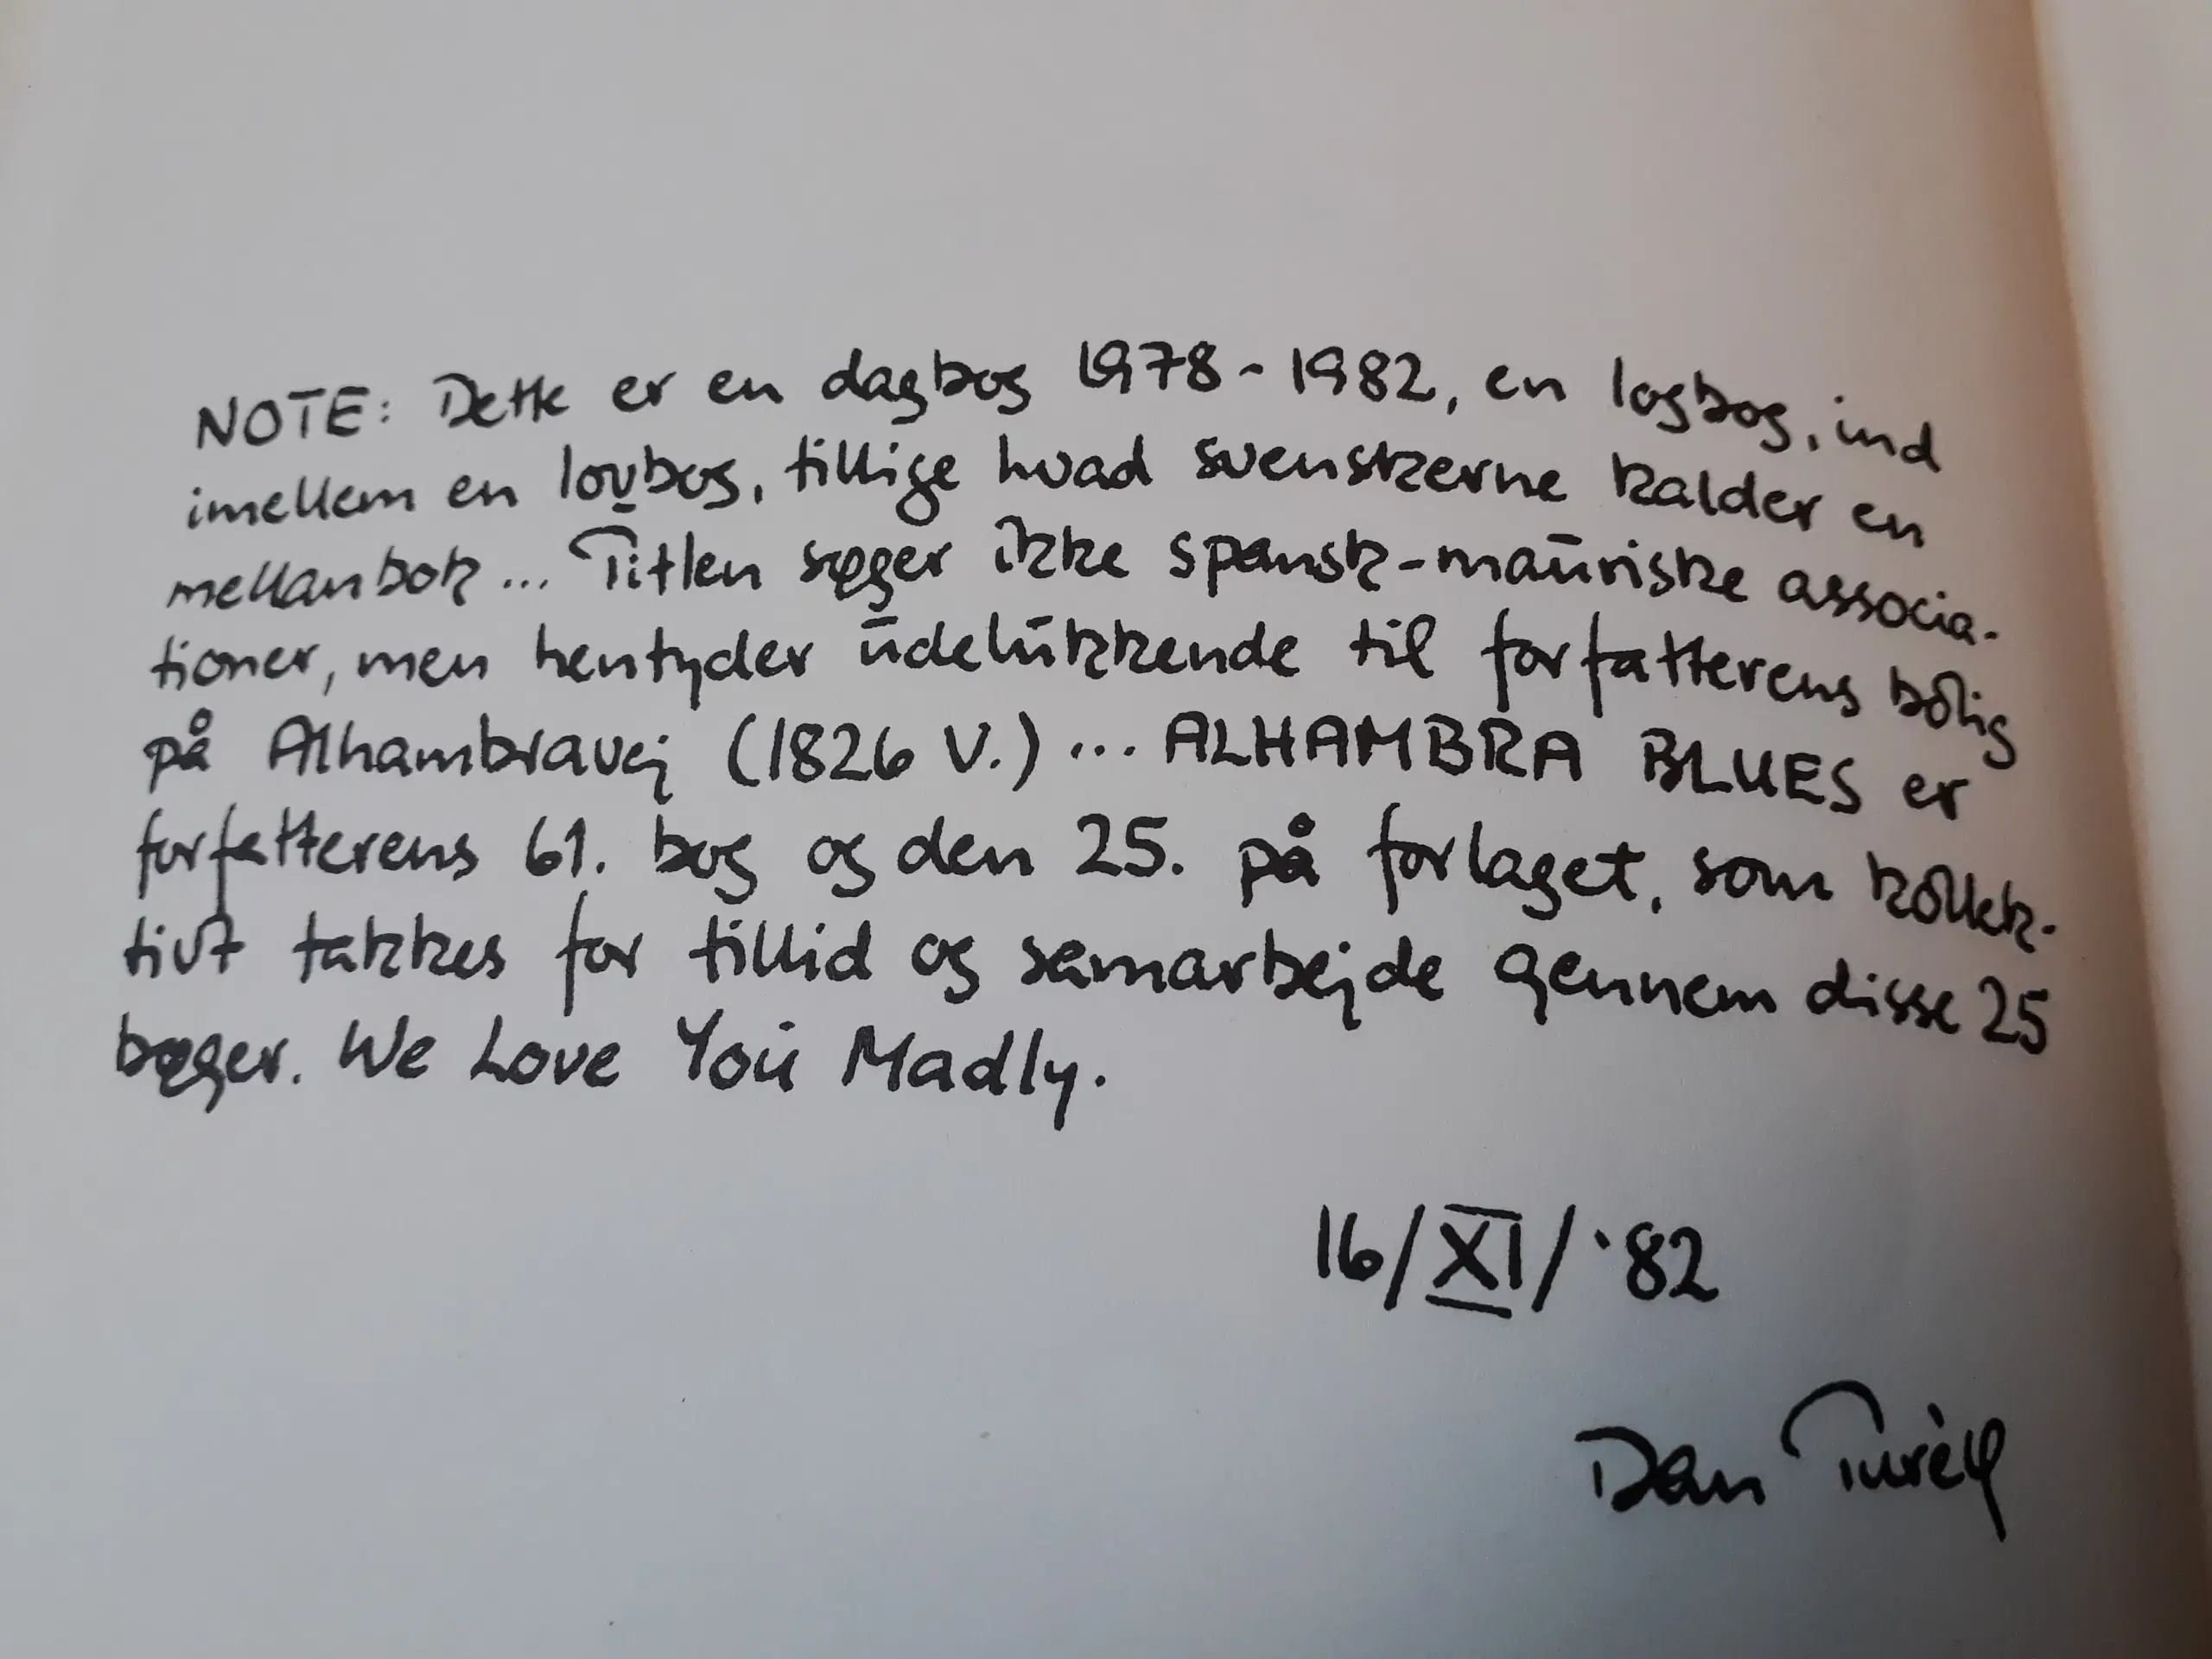 NOTE: Dette er en dagbog 1978-1982, en logbog, ind
imellem en lovbog, tillige hvad svenskerne kalder en
mellanbok... Titlen søger ikke spansk-mauriske associa-
tioner, men hentyder udelukkende til forfatterens bolig
på Alhambravej (1826 V.)... ALHAMBRA BLUES er
forfatterens 61. bog og den 25. på forlaget, som kollek-
tivt takkes for tillid og samarbejde gennem disse 25
bøger. We Love You Madly.
16/XI/'82
Dan Turèll